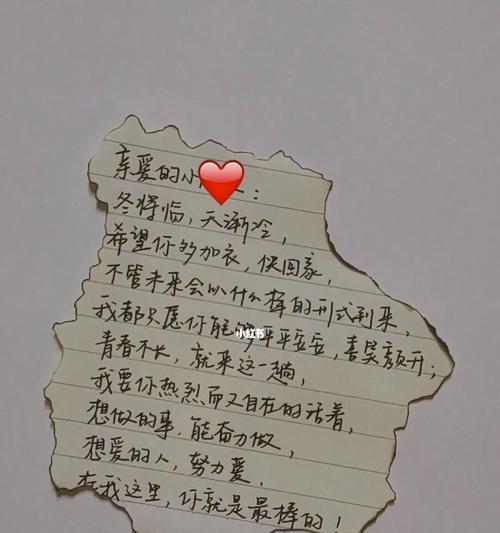 亲爱的小:
冬将临,天渐冷,
希望你多加衣,快回家,
不管未来会以什么样的形式到来,
我都只愿你能够平平安安,喜笑颜开;
小红书
青春不长,就来这一趟,
我要你热烈而又自在的活着,
想做的事,能奋力做,
想爱的人,努力爱,
在我这里,你就是最棒的!